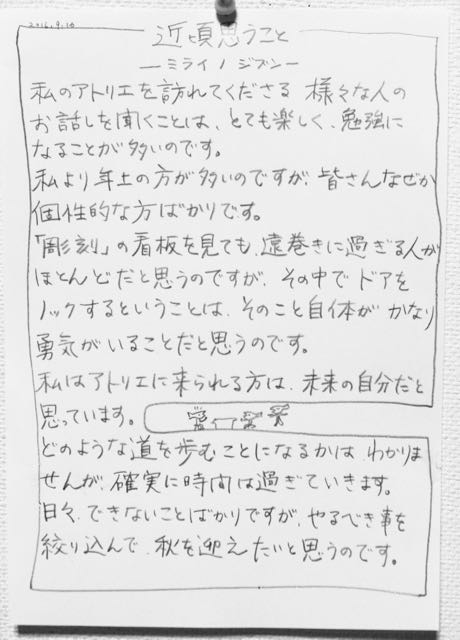 2016.9.10
近頃思うこと
―ミライノジブン―
私のアトリエを訪れてくださる 様々な人の
お話しを聞くことは、とても楽しく、勉強に
なることが多いのです。
私より年上の方が多いのですが、皆さんなぜか
個性的な方ばかりです。
「彫刻」の看板を見ても、遠巻きに過ぎる人が
ほとんどだと思うのですが、その中でドアを
ノックするということは、そのこと自体が かなり
勇気がいることだと思うのです。
私はアトリエに来られる方は、未来の自分だと
思っています。
どのような道を歩むことになるかは わかりま
せんが、確実に時間は過ぎていきます。
日々、できないことばかりですが、やるべき事を
絞り込んで、秋を迎えたいと思うのです。